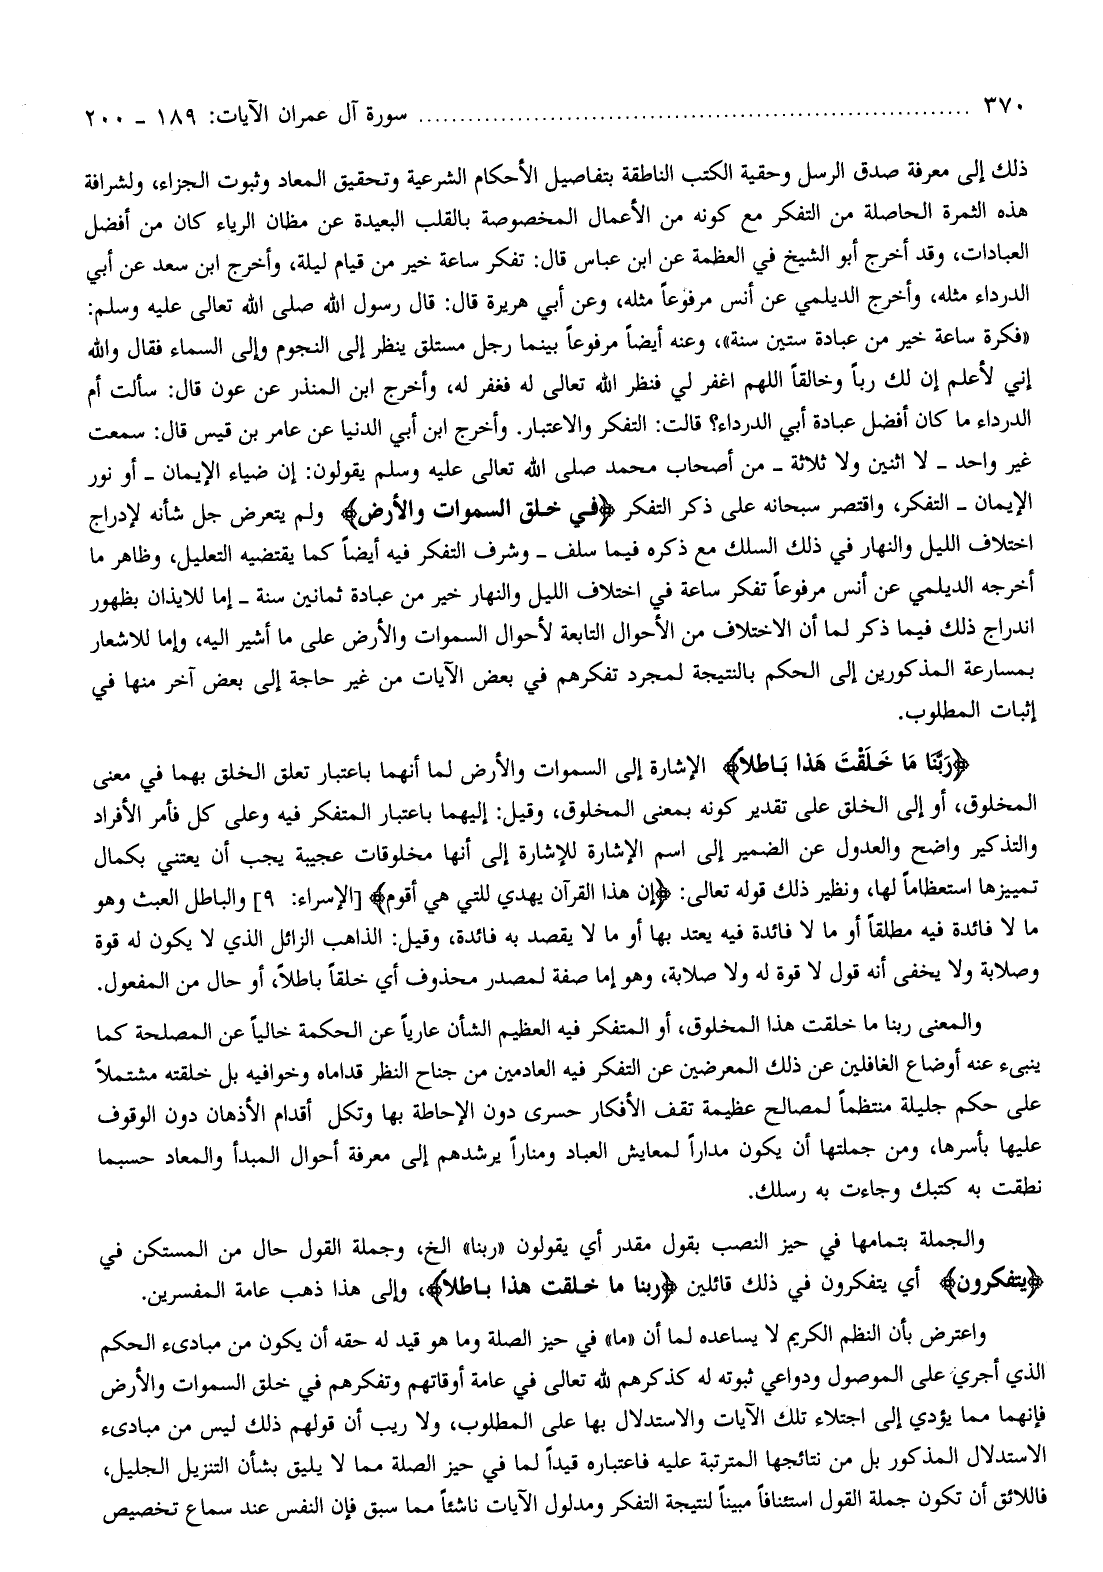 ٣٧٠ ........................................................................ سورة آل عمران الآيات: ١٨٩ ـ ٢٠٠
ذلك إلى معرفة صدق الرسل وحقية الكتب الناطقة بتفاصيل الأحكام الشرعية وتحقيق المعاد وثبوت الجزاء، ولشرافة
هذه الثمرة الحاصلة من التفكر مع كونه من الأعمال المخصوصة بالقلب البعيدة عن مظان الرياء كان من أفضل
العبادات، وقد أخرج أبو الشيخ في العظمة عن ابن عباس قال: تفكر ساعة خير من قيام ليلة، وأخرج ابن سعد عن أبي
الدرداء مثله، وأخرج الديلمي عن أنس مرفوعاً مثله، وعن أبي هريرة قال: قال رسول الله صلى الله تعالى عليه وسلم:
«فكرة ساعة خير من عبادة ستين سنة»، وعنه أيضاً مرفوعاً بينما رجل مستلق ينظر إلى النجوم وإلى السماء فقال والله
إني لأعلم إن لك رباً وخالقاً اللهم اغفر لي فنظر الله تعالى له فغفر له، وأخرج ابن المنذر عن عون قال: سألت أم
الدرداء ما كان أفضل عبادة أبي الدرداء؟ قالت: التفكر والاعتبار. وأخرج ابن أبي الدنيا عن عامر بن قيس قال: سمعت
غير واحد ـ لا اثنين ولا ثلاثة ـ من أصحاب محمد صلى الله تعالى عليه وسلم يقولون: إن ضياء الإيمان ـ أو نور
الإيمان ـ التفكر، واقتصر سبحانه على ذكر التفكر ﴿في خلق السموات والأرض﴾ ولم يتعرض جل شأنه لإدراج
اختلاف الليل والنهار في ذلك السلك مع ذكره فيما سلف ـ وشرف التفكر فيه أيضاً كما يقتضيه التعليل، وظاهر ما
أخرجه الديلمي عن أنس مرفوعاً تفكر ساعة في اختلاف الليل والنهار خير من عبادة ثمانين سنة ـ إما للايذان بظهور
اندراج ذلك فيما ذكر لما أن الاختلاف من الأحوال التابعة لأحوال السموات والأرض على ما أشير اليه، وإما للاشعار
بمسارعة المذكورين إلى الحكم بالنتيجة لمجرد تفكرهم في بعض الآيات من غير حاجة إلى بعض آخر منها في
إثبات المطلوب.
﴿رَبَّنَا مَا خَلَقْتَ هَذا بَاطلاً﴾ الإشارة إلى السموات والأرض لما أنهما باعتبار تعلق الخلق بهما في معنى
المخلوق، أو إلى الخلق على تقدير كونه بمعنى المخلوق، وقيل: إليهما باعتبار المتفكر فيه وعلى كل فأمر الأفراد
والتذكير واضح والعدول عن الضمير إلى اسم الإشارة للإشارة إلى أنها مخلوقات عجيبة يجب أن يعتني بكمال
تمييزها استعظاماً لها، ونظير ذلك قوله تعالى: ﴿إن هذا القرآن يهدي للتي هي أقوم﴾ [الإسراء: ٩] والباطل العبث وهو
ما لا فائدة فيه مطلقاً أو ما لا فائدة فيه يعتد بها أو ما لا يقصد به فائدة، وقيل: الذاهب الزائل الذي لا يكون له قوة
وصلابة ولا يخفى أنه قول لا قوة له ولا صلابة، وهو إما صفة لمصدر محذوف أي خلقاً باطلاً، أو حال من المفعول.
والمعنى ربنا ما خلقت هذا المخلوق، أو المتفكر فيه العظيم الشأن عارياً عن الحكمة خالياً عن المصلحة كما
ينبىء عنه أوضاع الغافلين عن ذلك المعرضين عن التفكر فيه العادمين من جناح النظر قداماه وخوافيه بل خلقته مشتملاً
على حكم جليلة منتظماً لمصالح عظيمة تقف الأفكار حسرى دون الإحاطة بها وتكل أقدام الأذهان دون الوقوف
عليها بأسرها، ومن جملتها أن يكون مداراً لمعايش العباد ومناراً يرشدهم إلى معرفة أحوال المبدأ والمعاد حسبما
نطقت به كتبك وجاءت به رسلك.
والجملة بتمامها في حيز النصب بقول مقدر أي يقولون «ربنا» الخ، وجملة القول حال من المستكن في
﴿يتفكرون﴾ أي يتفكرون في ذلك قائلين ﴿ربنا ما خلقت هذا باطلاً﴾، وإلى هذا ذهب عامة المفسرين.
واعترض بأن النظم الكريم لا يساعده لما أن «ما» في حيز الصلة وما هو قيد له حقه أن يكون من مبادىء الحكم
الذي أجري على الموصول ودواعي ثبوته له كذكرهم لله تعالى في عامة أوقاتهم وتفكرهم في خلق السموات والأرض
فإنهما مما يؤدي إلى اجتلاء تلك الآيات والاستدلال بها على المطلوب، ولا ريب أن قولهم ذلك ليس من مبادىء
الاستدلال المذكور بل من نتائجها المترتبة عليه فاعتباره قيداً لما في حيز الصلة مما لا يليق بشأن التنزيل الجليل،
فاللائق أن تكون جملة القول استئنافاً مبيناً لنتيجة التفكر ومدلول الآيات ناشئاً مما سبق فإن النفس عند سماع تخصيص